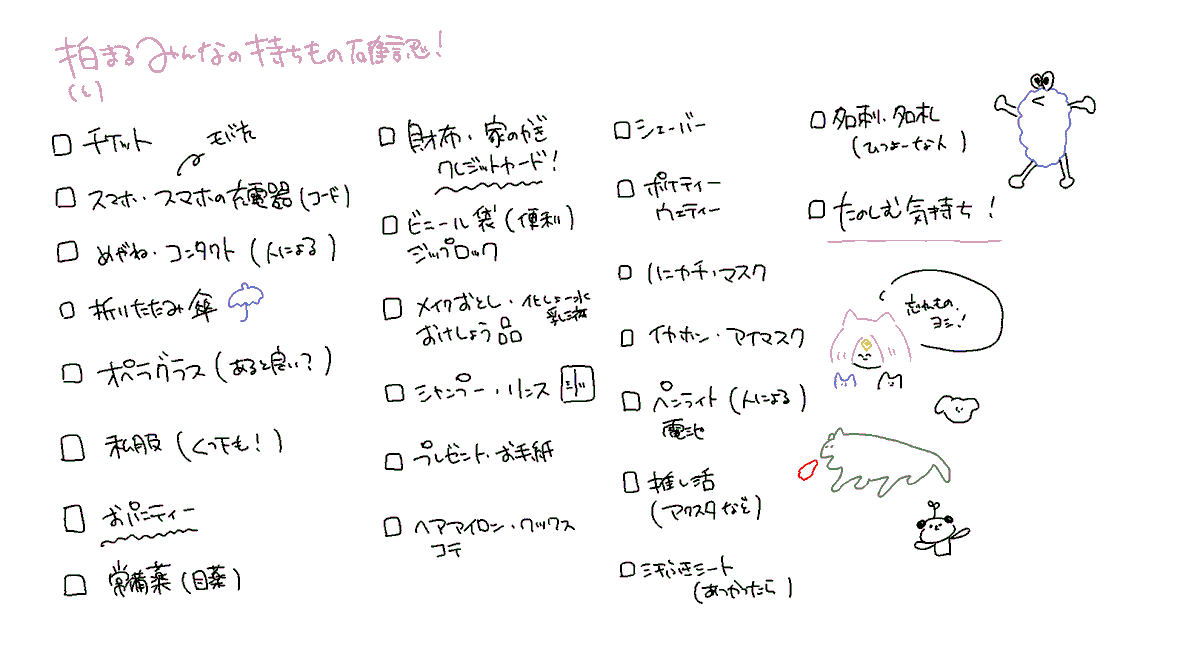 柏まるみんなの持ちもの確認！
(し)
チケット
モバれ
スマホ・スマホの充電器(コード)
めがね・コンタクト(人による)
折りたたみ傘
オペラグラス(あると良い？)
私服(くつ下も！)
おパンティー
常備薬(目薬)
財布・家のかぎ
クレジットカード！
ビニール袋(便利)
ジップロック
メイクおとし・化しょー水
乳液
おけしょう品
シャンプー・リンス
プレゼント・お手紙
ヘアアイロン・ワックス
コテ
シェーバー
ポケティー
ウェティー
ハンカチ・マスク
イヤホン・アイマスク
ペンライト(人による)
電池
推し活
(アクスタなど)
汗ふきシート
(あつかったら)
名刺・名札
(ひつよーな人)
たのしむ気持ち！
忘れもの
ヨシ！